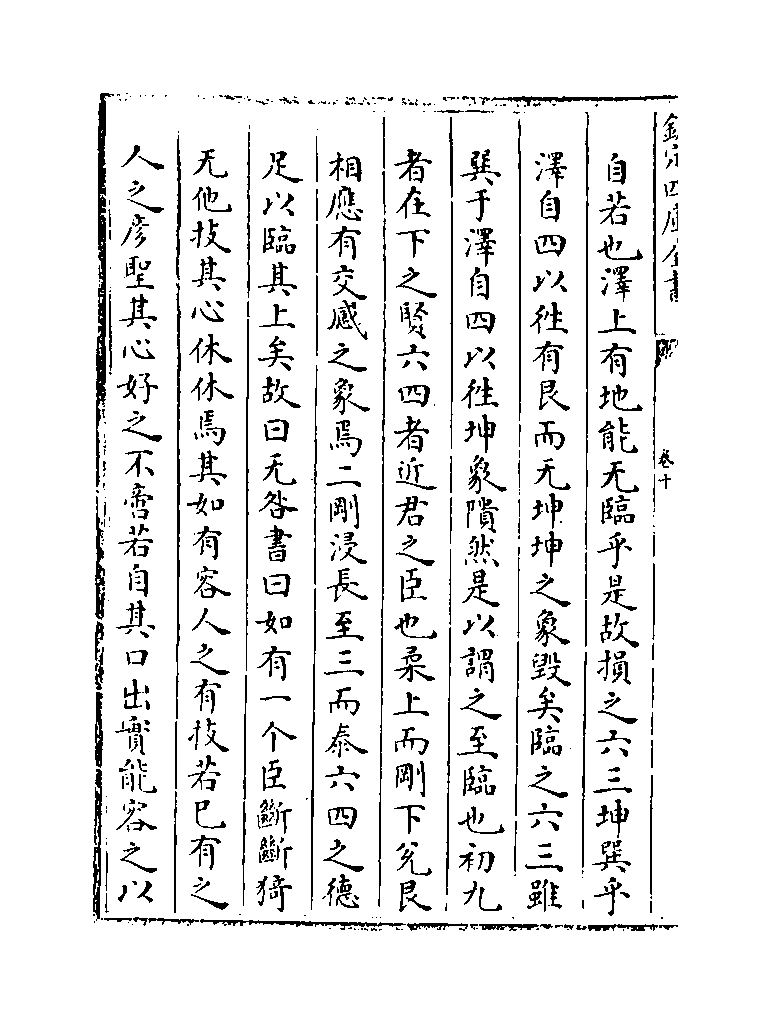 欽定四庫全書
卷十
自若也澤上有地能无臨乎是故損之六三坤巽乎
澤自四以徃有艮而无坤坤之象毀矣臨之六三雖
巽于澤自四以徃坤象隤然是以謂之至臨也初九
者在下之賢六四者近君之臣也柔上而剛下兊艮
相應有交感之象焉二剛浸長至三而泰六四之德
足以臨其上矣故曰无咎書曰如有一个臣斷斷猗
无他技其心休休焉其如有容人之有技若已有之
人之彦聖其心好之不啻若自其口出實能容之以